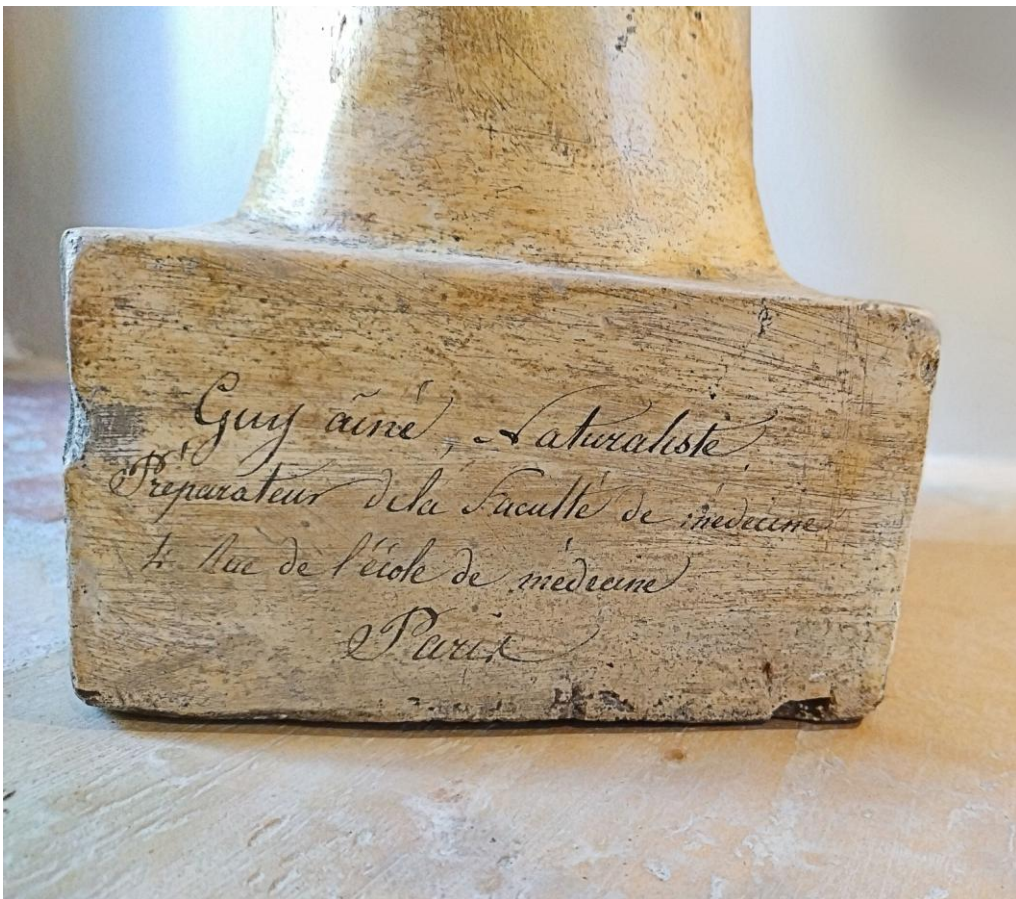 Guy aîné, Naturaliste
Préparateur de la Faculté de médecine
4 Rue de l'école de médecine
Paris